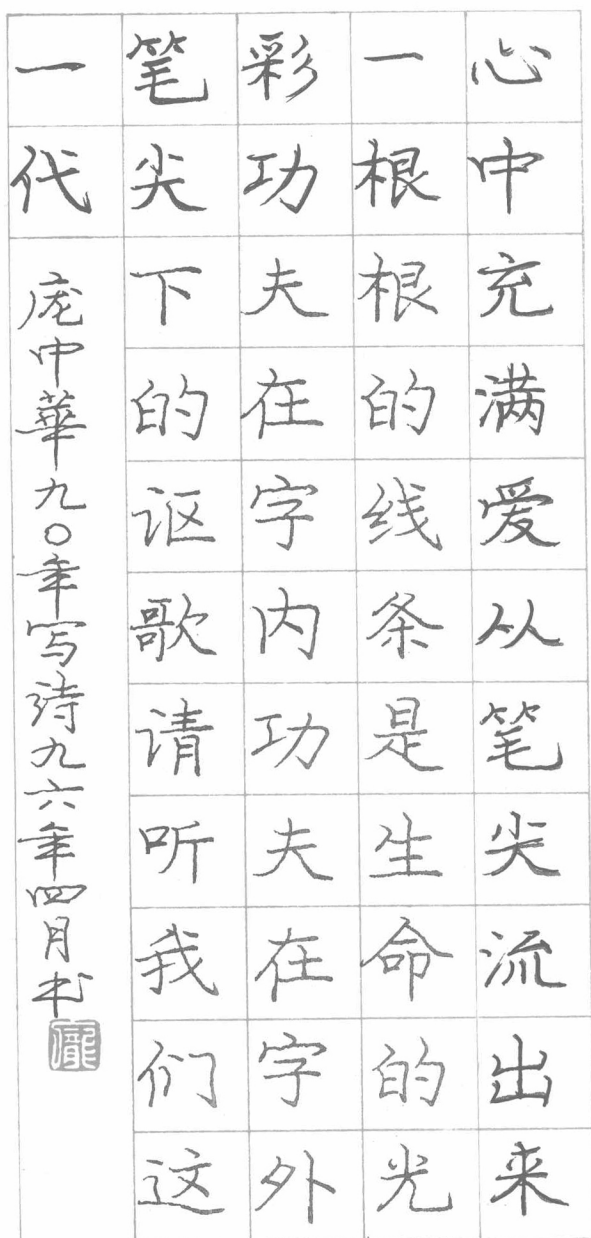 心中充满爱从笔尖流出来
一根根的线条是生命的光
彩功夫在字内功夫在字外
笔尖下的讴歌请听我们这
一代
庞中華九〇年写诗九六年四月书